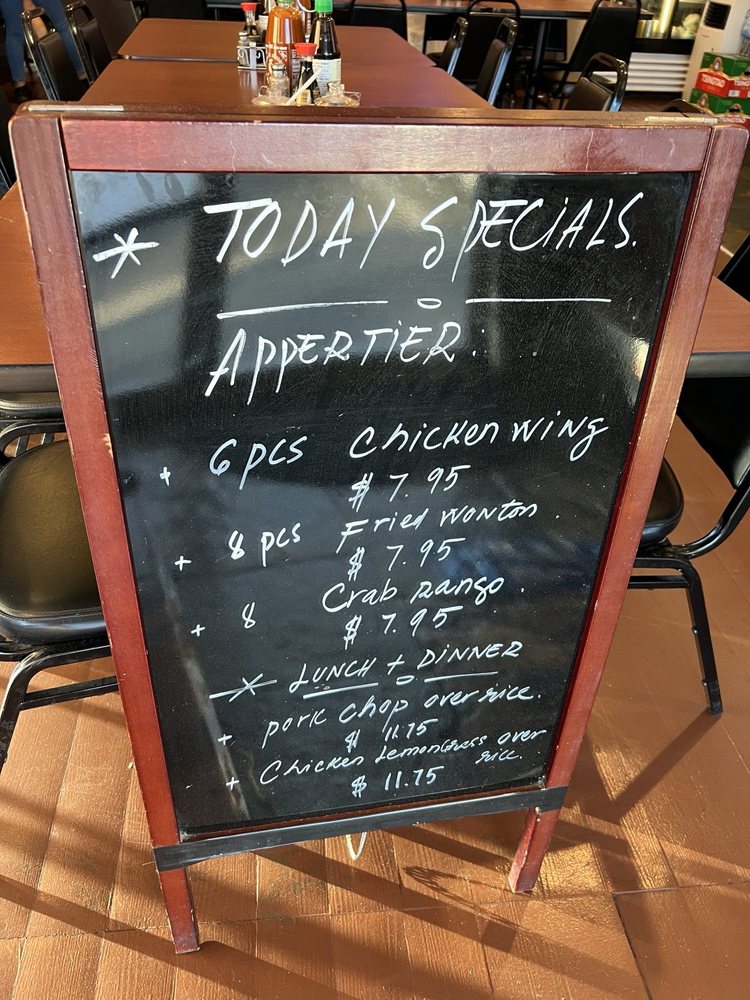 * TODAY SPECiALS.
APPERTiER:
+ 6 pcs Chicken wing
$ 7.95
+ 8 pcs Fried wonton.
$ 7.95
+ 8 Crab Rango.
$ 7.95
* LUNCH + DINNER
+ pork chop over rice.
$ 11.75
+ Chicken Lemongrass over
rice.
$ 11.75
TSINGTAO
TSINGTAO